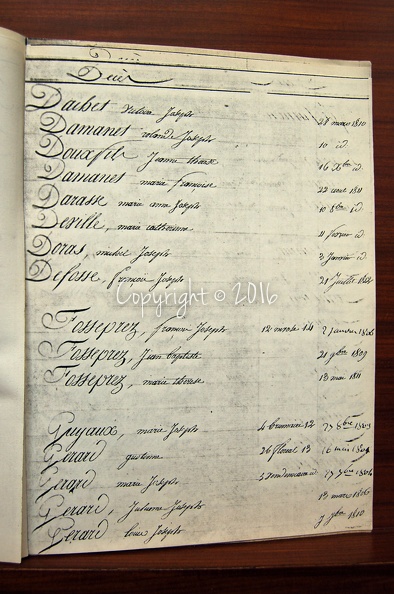 Décès
Dachet Joseph 28 mars 1810
Damanet rolande Joseph 10 id
Douxfils Jeanne therese 16 Xbre id
Damanet marie francoise 22 aout 1811
Darasse marie anne Joseph 10 8bre id
Deville, marie catherinne 11 fevrier id
Doras, michel Joseph 3 Janvier id
Defosse, francois Joseph 21 Juillet
Copyright © 2016
Fosseprez, francois Joseph 14 2 Janvier
Fosseprez, Jean Baptiste 21 9bre 1809
Fosseprez, marie therese 13 mai 1811
Guyaux, marie Joseph 4 brumaire 12 27 8bre
Gerard 26 floreal 13 16 mai
Gerard marie Joseph
Gerard, Julienne Joseph 13 mars 1806
Gerard louis Joseph 7bre 1810